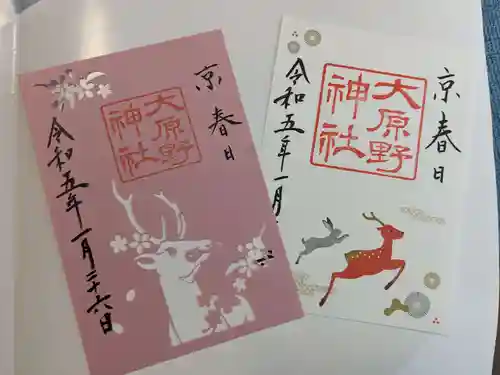 京春日
大原野
神社
令和五年一月二十六日
京春日
大原野
神社
令和五年一月